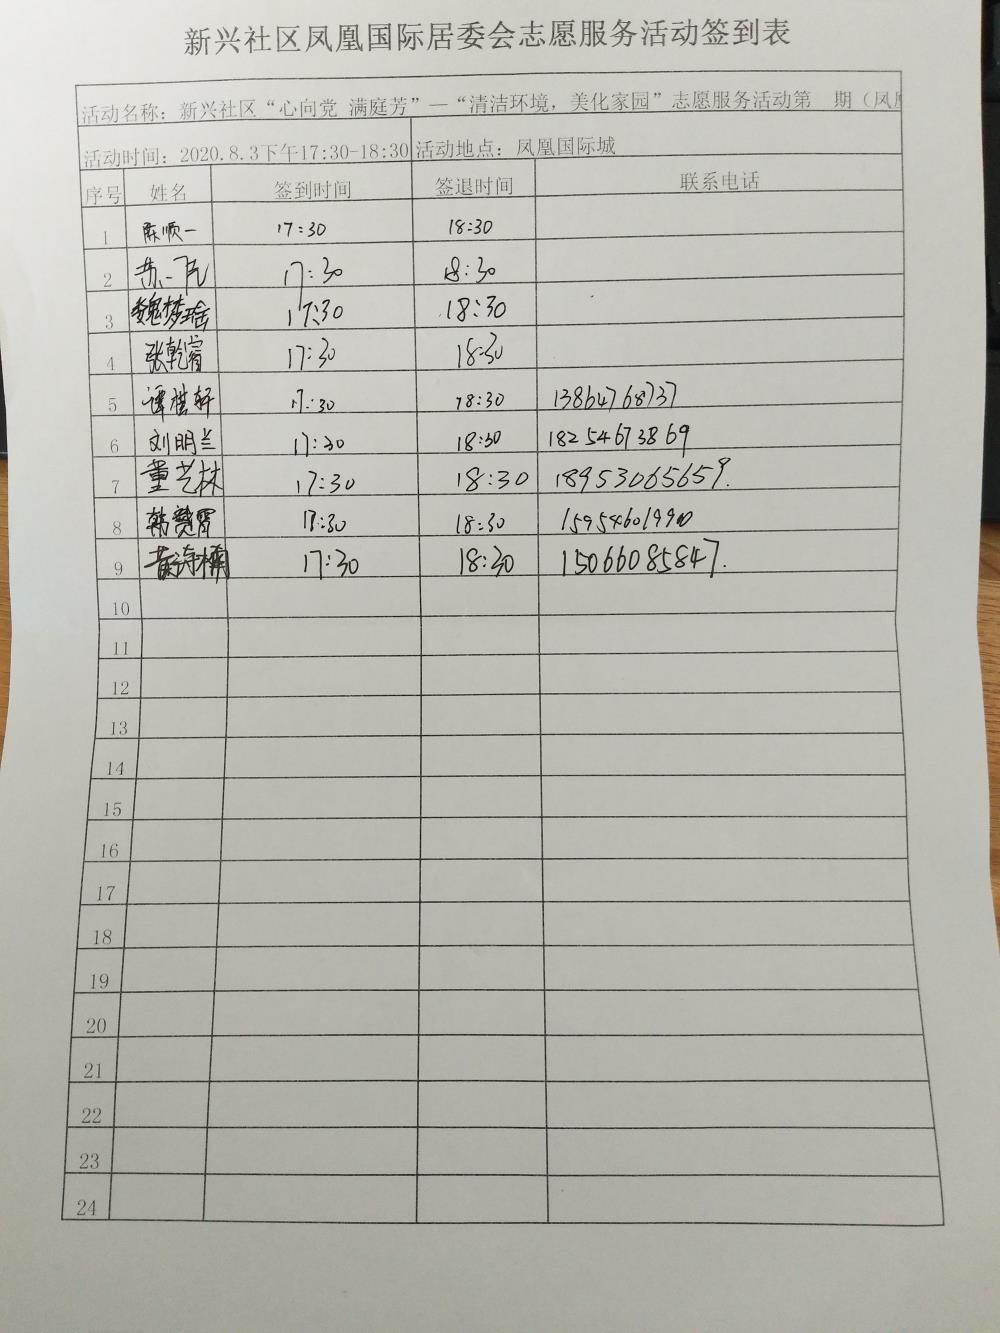 新兴社区凤凰国际居委会志愿服务活动签到表
活动名称：新兴社区“心向党 满庭芳”—“清洁环境，美化家园”志愿服务活动第 期（凤凰
活动时间：2020.8.3下午17:30-18:30 活动地点：凤凰国际城
序号 姓名 签到时间 签退时间 联系电话
1 陈顺一 17:30 18:30
2 苏一飞 17:30 18:30
3 魏梦瑶 17:30 18:30
4 张乾宵 17:30 18:30
5 谭棋轩 17:30 18:30 13864768737
6 刘明兰 17:30 18:30 18254673869
7 董艺林 17:30 18:30 18953065659.
8 韩赞霄 17:30 18:30 15954601990
9 黄诗楠 17:30 18:30 15066085847.
10
11
12
13
14
15
16
17
18
19
20
21
22
23
24